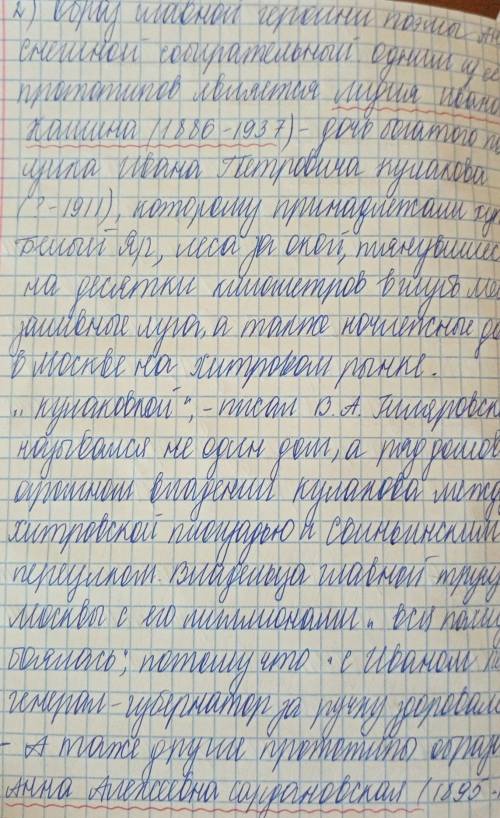 2) Образ главной героини поэмы Ан
снегиной собирательный одним из её
прототипов является Лидия Иван
Кашина (1886-1937) - дочь богатого по
щика Ивана Петровича Кулакова
(?-1911), которому принадлежали ху
Белый Яр, леса за окой, тянувшиес
на десятки километров вглубь Ме
заливные луга, а также ночлежные до
в Москве на Хитровом рынке.
„Кулаковкой", - писал В. А. Гиляровск
назывался не один дом, а ряд домов
огромном владении Кулакова межд
хитровской площадью и Свиньинским
переулком. Владельца главной трущ
Москвы с его миллионами „вся полиц
боялась", потому что „с Иваном П
генерал-губернатор за ручку здоровал
- А таже другие прототипы образа
Анна Алексеевна Сардановская (1895-